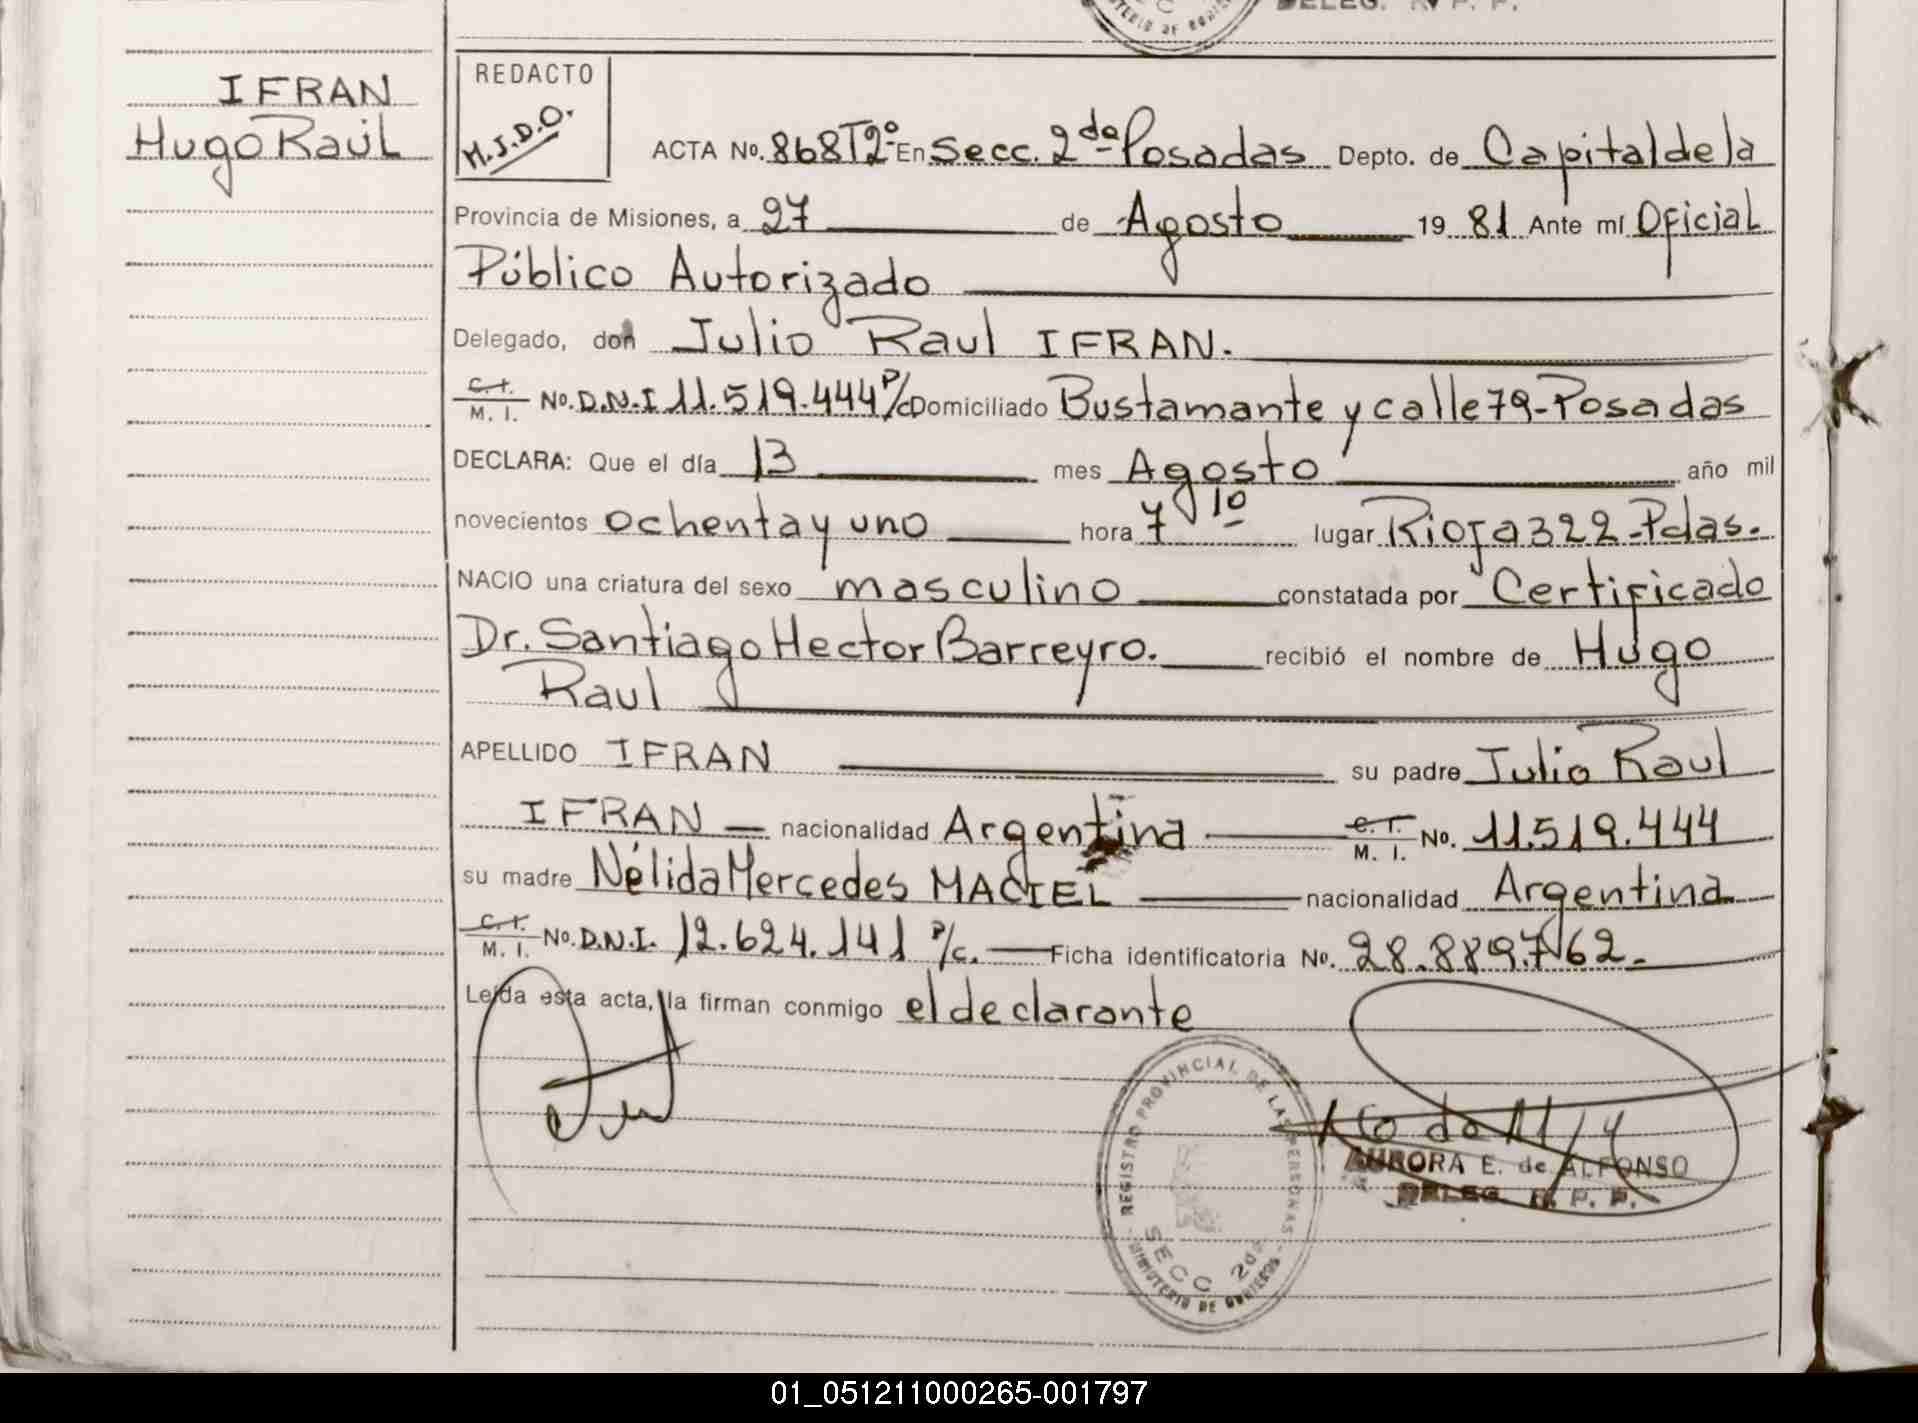 MINISTERIO DE GOBIERNO
DELEG. R. P. P.
IFRAN
Hugo Raúl
REDACTO
M.J.D.O.
ACTA No. 868 T2º En Secc. 2da Posadas Depto. de Capital de la
Provincia de Misiones, a 27 de Agosto 1981 Ante mí Oficial
Público Autorizado
Delegado, don Julio Raul IFRAN.
C.I. M. I. No. D.N.I 11.519.444 P/c Domiciliado Bustamante y calle 79-Posadas
DECLARA: Que el día 13 mes Agosto año mil
novecientos ochenta y uno hora 7 10 lugar Rioja 322-Pdas.
NACIO una criatura del sexo masculino constatada por Certificado
Dr. Santiago Hector Barreyro. recibió el nombre de Hugo
Raul
APELLIDO IFRAN su padre Julio Raul
IFRAN nacionalidad Argentina C. I. M. I. No. 11.519.444
su madre Nélida Mercedes MACIEL nacionalidad Argentina
C.I. M. I. No. D.N.I. 12.624.141 P/c. Ficha identificatoria No. 28.889.762.
Leída esta acta, la firman conmigo el declarante
REGISTRO PROVINCIAL DE LAS PERSONAS
SECC 2da
MINISTERIO DE GOBIERNO
AURORA E. de ALFONSO
DELEG. R. P. P.
01_051211000265-001797